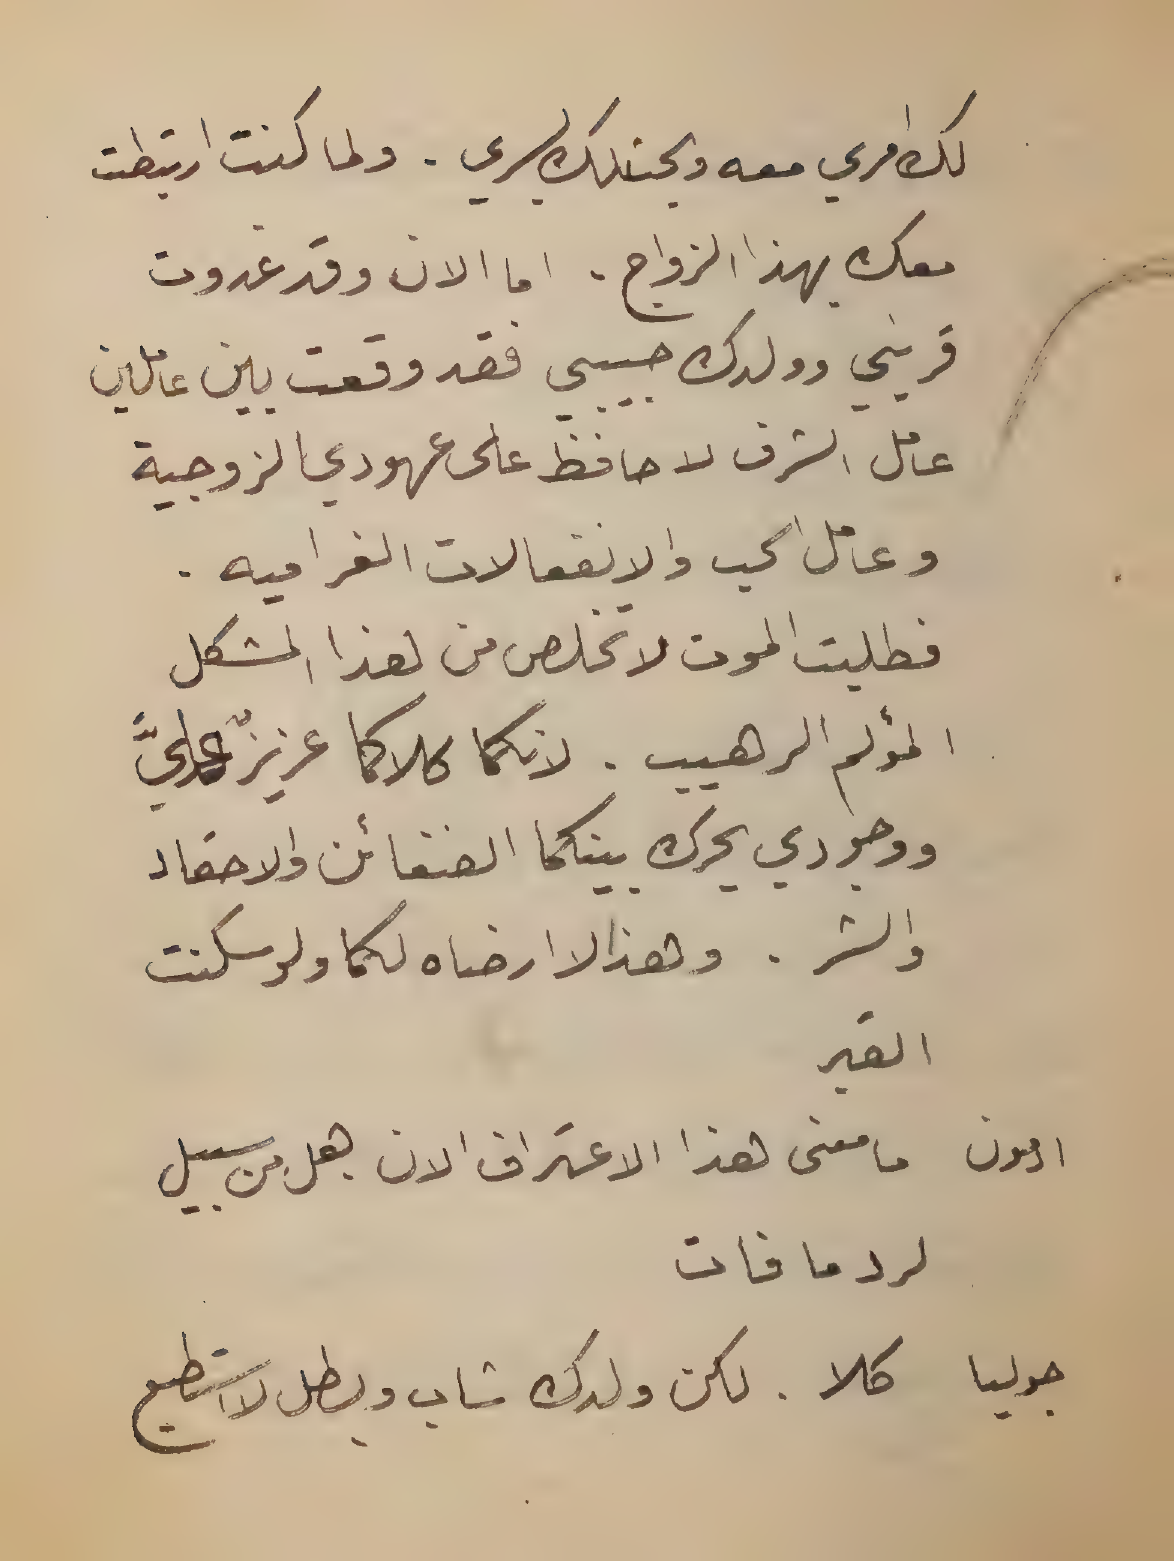 لك امري معه وبحت لك بسري . ولما كنت ارتبطت
معك بهذا الزواج . اما الان وقد غدوت
قريني وولدك حبيبي فقد وقعت بين عاملين
عامل الشرف لاحافظ على عهودي الزوجية
وعامل الحب والانفعالات الغراميه .
فطلبت الموت لاتخلص من هذا المشكل
المؤلم الرهيب . لانكما كلاكما عزيزٌ عليَّ
ووجودي يحرك بينكما الضغائن والاحقاد
والشر . وهذا لا ارضاه لكما ولو سكنت
القبر
ادمون ما معنى هذا الاعتراف الان هل من سبيل
لرد ما فات
جوليا كلا . لكن ولدك شاب وبطل لا استطيع